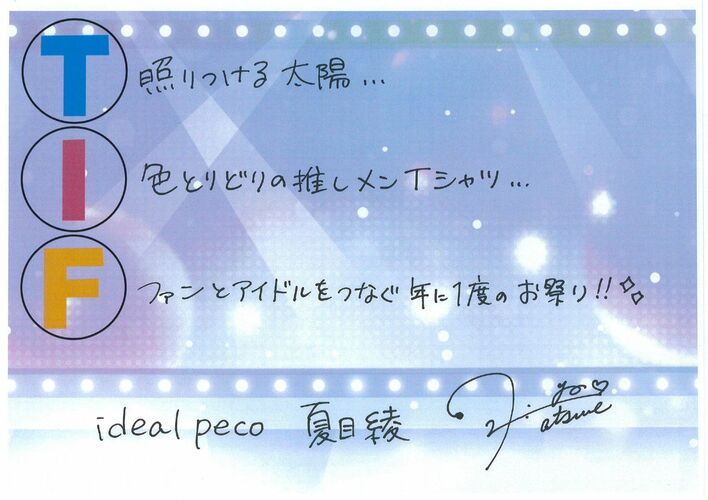 T 照りつける太陽...
I 色とりどりの推しメンTシャツ...
F ファンとアイドルをつなぐ年に1度のお祭り!!
ideal peco 夏目綾